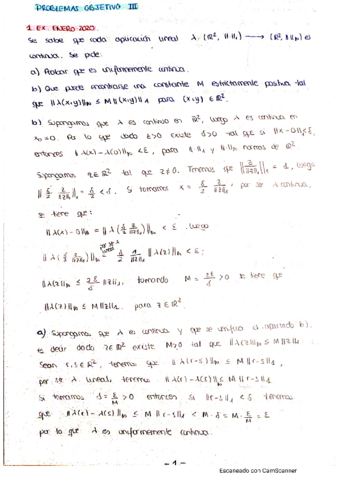 PROBLEMAS OBJETIVO III
1. EX. ENERO 2020
Se sabe que cada aplicación lineal λ: (ℝ², ‖·‖₁) → (ℝ², ‖·‖∞) es
continua. Se pide:
a) Probar que es uniformemente continua.
b) Que puede encontrarse una constante M estrictamente positiva tal
que ‖λ(x,y)‖∞ ≤ M‖(x,y)‖₁ para (x,y) ∈ ℝ².
b) Supongamos que λ es continua en ℝ², luego λ es continua en
x₀=0. Por lo que dado ε>0 existe δ>0 tal que si ‖x-0‖<δ,
entonces ‖λ(x)-λ(0)‖∞ < ε, para ‖·‖₁ y ‖·‖∞ normas de ℝ²
Supongamos z∈ℝ² tal que z≠0. Tenemos que ‖z/‖z‖₁‖₁ = 1, luego
‖δ/2 z/‖z‖₁‖₁ = δ/2 < δ. Si tomamos x = δ/2 z/‖z‖₁, por ser λ continua,
se tiene que:
‖λ(x)-0‖∞ = ‖λ(δ/2 z/‖z‖₁)‖∞ < ε. Luego
‖λ(δ/2 z/‖z‖₁)‖∞ = δ/2 1/‖z‖₁ ‖λ(z)‖∞ < ε;
‖λ(z)‖∞ ≤ 2ε/δ ‖z‖₁, tomando M = 2ε/δ >0 se tiene que
‖λ(z)‖∞ ≤ M‖z‖₁ para z∈ℝ².
a) Supongamos que λ es continua y que se verifica el apartado b),
es decir dado z∈ℝ² existe M>0 tal que ‖λ(z)‖∞ ≤ M‖z‖₁.
Sean r,s∈ℝ², tenemos que ‖λ(r-s)‖∞ ≤ M‖r-s‖₁,
por ser λ lineal, tenemos ‖λ(r)-λ(s)‖∞ ≤ M‖r-s‖₁
Si tomamos δ = ε/M >0 entonces si ‖r-s‖₁ < δ tenemos
que ‖λ(r)-λ(s)‖∞ ≤ M ‖r-s‖₁ < M·δ = M·ε/M = ε
por lo que λ es uniformemente continua.
- 1 -
Escaneado con CamScanner